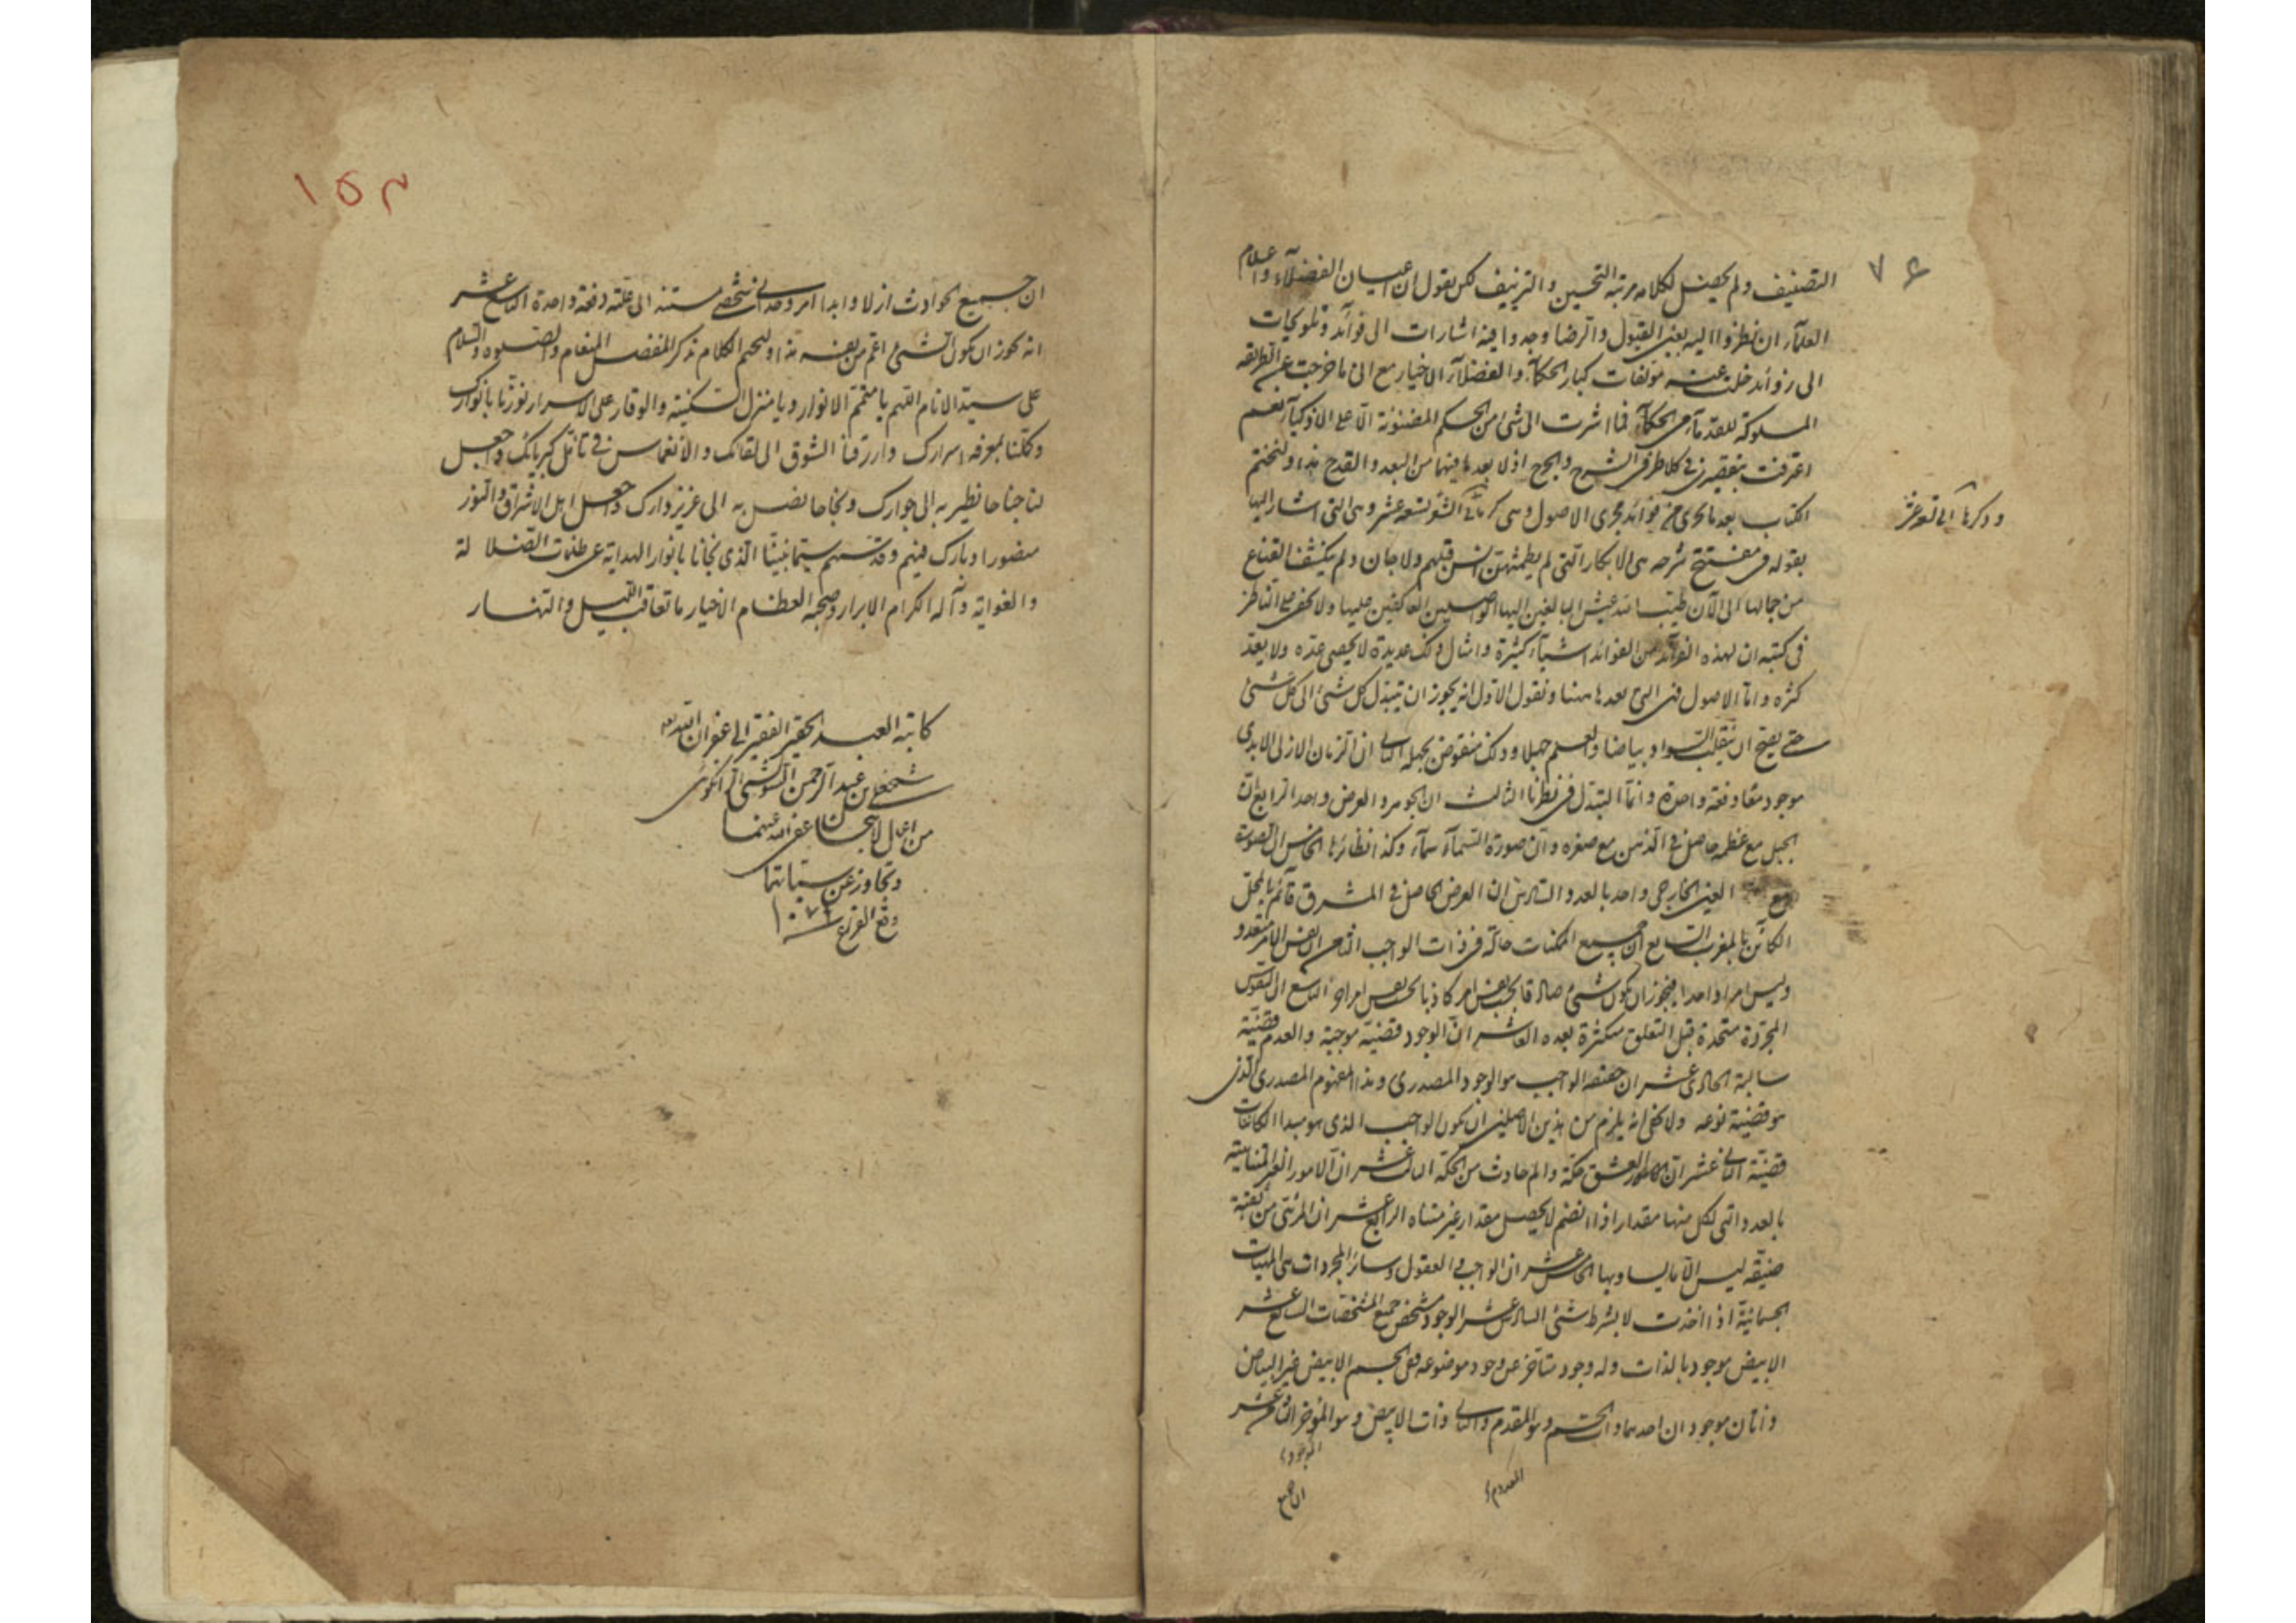 ٧٤
التصنيف ولم يحصل لكلامه مرتبة التحسين والتزييف لكن نقول ان اعيان الفضلآء واعلام
العلمآء ان نظروا اليه بعين القبول والرضا وجدوا فيه اشارات الى فوآئد وتلويحات
الى زوائد خلت عنه مؤلفات كبار الحكمآء والفضلآء الاخيار مع انى ما خرجت عن الطريقة
المسلوكة للقدمآء من الحكمآء فما اشرت الى شئ من الحكم المضنونة الا على الاذكيآء نعم
اعترفت بتقصيرى فى كلا طرفى الشرح والجرح اذ لا بعد ما فيهما من البعد والقدح هذا ولنختم
الكتاب بعد ما جرى من فوائد مجرى الاصول وهى تسعة عشر وهى التى اشار اليها
وذكرها تسعة عشر
بقوله فى مفتتح شرحه هى الابكار التى لم يطمثهن انس قبلهم ولا جان ولم يكشف القناع
عن جمالها الى الآن طيب الله عيش البالغين اليها الواصلين العاكفين عليها ولا يخفى على الناظر
فى كتبه ان لهذه الفوآئد من الفوائد اشيآء كثيرة وامثال ذلك عديدة لا يحصى عده ولا يعد
كثره واما الاصول فهى التى نعدها ههنا ونقول الاول انه يجوز ان يتبدل كل شئ الى كل شئ
حتى يصح ان ينقلب السواد بياضا والعلم جهلا وذلك منقوض بجهله الثانى ان الزمان الازلى الابدى
موجود معا دفعة واحدة وانما التبدل فى نظرنا الثالث ان الجوهر والعرض واحد الرابع ان
الجبل مع عظمه حاصل فى الذهن مع صغره وان صورة السمآء سمآء وكذا نظائرها الخامس ان الصورة
مع العين الخارجى واحد بالعدد السادس ان العرض الحاصل فى المشرق قآئم بالمحل
الكآئن بالمغرب السابع ان جميع الممكنات حالة فى ذات الواجب الثامن ان نفس الامر متعدد
وليس امرا واحدا فيجوز ان يكون شئ صادقا بحسب نفس امر كاذبا بحسب نفس امر آخر التاسع ان النفوس
المجردة متحدة قبل التعلق متكثرة بعده العاشر ان الوجود قضية موجبة والعدم قضية
سالبة الحادى عشر ان حقيقة الواجب هو الوجود المصدرى وهذا المفهوم المصدرى الذى
هو قضية نوعه ولا يخفى انه يلزم من هذين الاصلين ان يكون الواجب الذى هو مبدا الكائنات
قضية الثانى عشر ان العشق حكة والم حادث من الحكة الثالث عشر ان الامور الغير المتناهية
بالعدد التى لكل منها مقدار اذا انضم لا يحصل مقدار غير متناه الرابع عشر ان المرئى من ثقبة
ضيقة ليس الا ما يساويها الخامس عشر ان الواجب والعقول وسائر المجردات هى المهيات
الجسمانية اذا اخذت لا بشرط شئ السادس عشر الوجود مشخص جميع المشخصات السابع عشر
الابيض موجود بالذات وله وجود متأخر عن وجود موضوعه ففى الجسم الابيض غير البياض
ذاتان موجودان احدهما ذات الجسم وهو المقدم والثانى ذات الابيض وهو المؤخر الثامن عشر
المعدوم
الموجود
ان جميع
١٥٣
ان جميع الحوادث ازلا وابدا امر وحدانى شخصى مستند الى علته دفعة واحدة التاسع عشر
انه يجوز ان يكون الشئ اعم من نفسه هذا ولنختم الكلام بذكر المفضل المنعام والصلوة والسلام
على سيد الانام اللهم يا متمم الانوار ويا منزل السكينة والوقار على الاسرار نورنا بانوارك
وكملنا بمعرفة اسرارك وارزقنا الشوق الى لقائك والانغماس فى تأمل كبريائك واجعل
لنا جناحا نطير به الى جوارك ونجاحا نصل به الى عزيز دارك واجعل اهل الاشراق والنور
منصورا وبارك فيهم وقدسهم سيما نبينا الذى نجانا بانوار الهداية عن ظلمات الضلالة
والغواية وآله الكرام الابرار وصحبه العظام الاخيار ما تعاقب الليل والنهار
كاتبه العبد الحقير الفقير الى غفران الله
شمس على بن عبد الرحمن الرانكوئى
من اعمال لاهيجان عفى الله عنهما
وتجاوز عن سيئاتهما
وقع الفراغ سنة ١٠٧٢